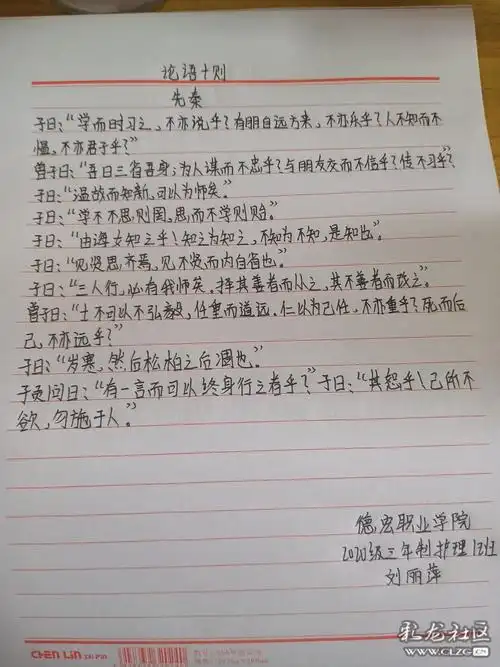 论语十则
先秦
子曰："学而时习之，不亦说乎？有朋自远方来，不亦乐乎？人不知而不
愠，不亦君子乎？"
曾子曰："吾日三省吾身：为人谋而不忠乎？与朋友交而不信乎？传不习乎？"
子曰："温故而知新，可以为师矣。"
子曰："学不不思则罔，思而不学则殆。"
子曰："由诲女知之乎！知之为知之，不知为不知，是知也。"
子曰："见贤思齐焉，见不贤而内自省也。"
子曰："三人行，必有我师矣。择其善者而从之，其不善者而改之。"
曾子曰："士不可以不弘毅，任重而道远。仁以为己任，不亦重乎？死而后
已，不亦远乎？"
子曰："岁寒，然后松柏之后凋也。"
子贡问曰："有一言而可以终身行之者乎？"子曰："其恕乎！己所不
欲，勿施于人。"
德宏职业学院
2020级三年制护理12班
刘丽萍
CHEN LIN
彩龙社区
www.CLZG.cn